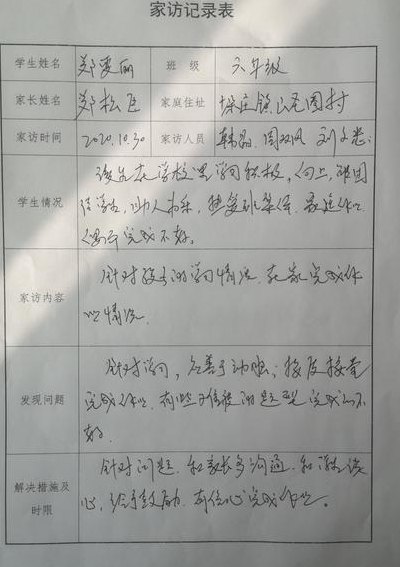 家访记录表
学生姓名 郑雯丽 班级 六年级
家长姓名 郑松民 家庭住址 圈村
家访时间 2020.10.30 家访人员 韩 周 刘
学生情况
该生在学校里学习积极,向上,团
结学生,助人为乐,热爱班集体,家庭作业
偶尔完成不好。
家访内容
针对孩子的学习情况,在家完成作
业情况.
发现问题
针对学习,不善于动脑;
完成作业,有些 的题型完成的不
好.
解决措施及
时限
针对问题,和家长多沟通,和学生谈
心,给予鼓励,有信心完成作业。